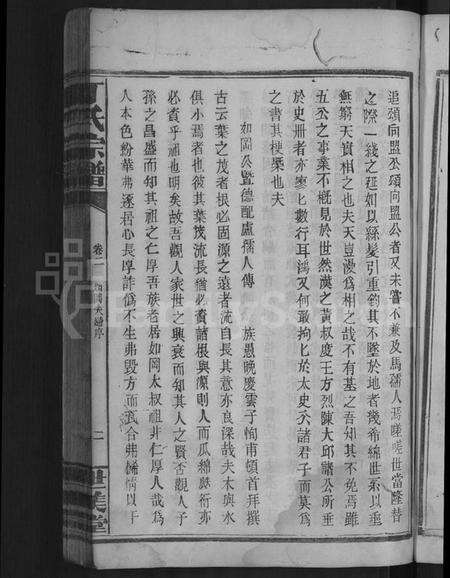 追頌向盟公頌向盟公者又未嘗不兼及馬孺人焉嗟嗟世當隆替
之際一綫之延如以絲髮引重鈞其不墜於地者幾希綿世系以垂
無窮天實相之也夫天豈漫為相之哉不有基之吾知其不免焉雖
五公之事業不概見於世然漢之黃叔度王方烈陳大邱諸公所垂
於史册者亦寥寥數行耳鴻又何敢拘匕於太史公諸君子而莫為
之書其梗槩也夫
如岡公暨德配盧孺人傳 族愚晚慶雲子恂甫頓首拜撰
古云葉之茂者根必固源之遠者流自長其意亦良深哉夫木與水
俱小焉者也彼其葉茂流長猶必資諸根與源則人而瓜綿蔓衍亦
必資乎祖也明矣故吾觀人家世之興衰而知其人之賢否觀人子
孫之昌盛而知其祖之仁厚吾族老居如岡太叔祖非仁厚人哉為
人本色紛華弗逐居心長厚詐偽不生弗毀方而瓦合弗矯情以于
丁氏宗譜
卷二
二
世美堂